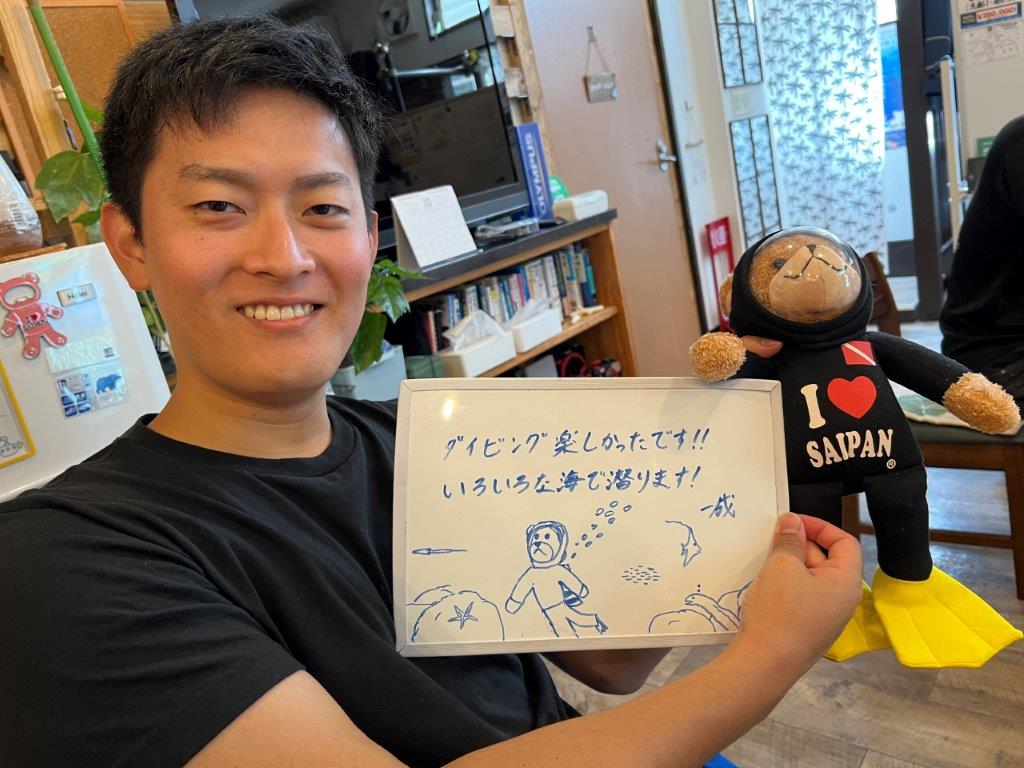 ダイビング楽しかったです!!
いろいろな海で潜ります!
一成
I ♥
SAIPAN®
OLYMPUS
Haier
10
¥250,000!